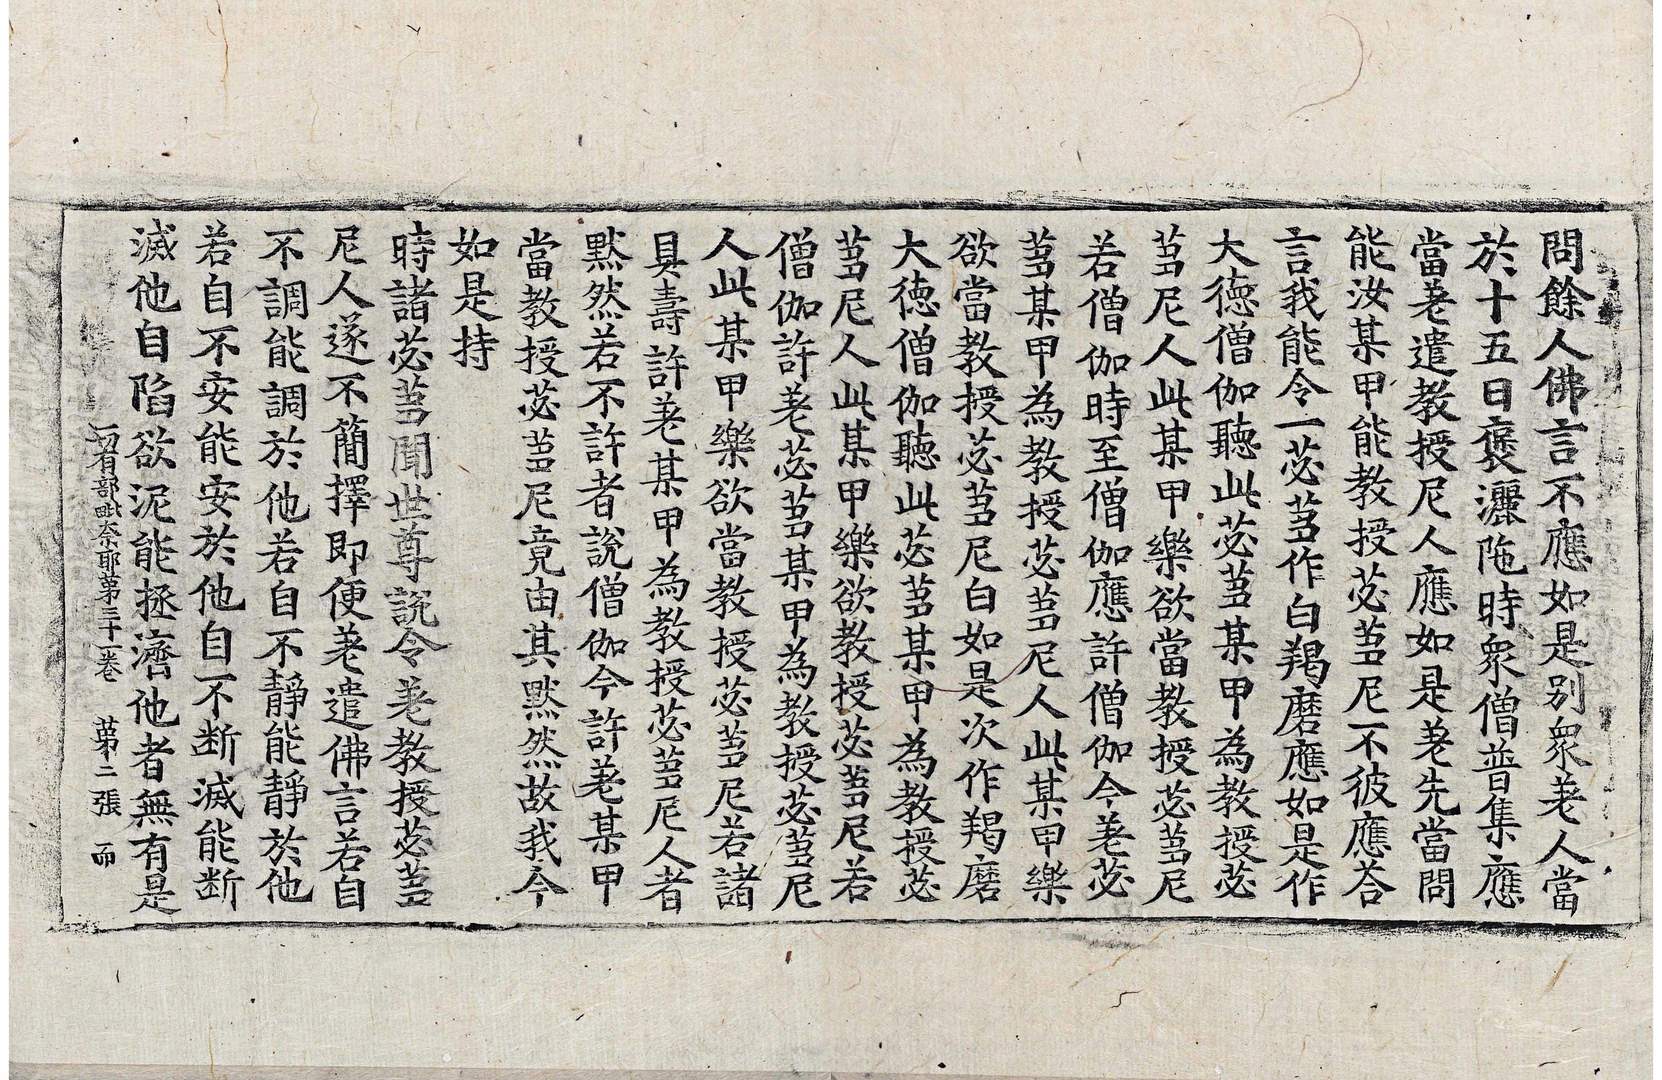 問餘人佛言不應如是別衆差人當
於十五日褒灑陁時衆僧普集應
當差遣教授尼人應如是差先當問
能汝某甲能教授苾芻尼不彼應荅
言我能令一苾芻作白羯磨應如是作
大德僧伽聽此苾芻某甲為教授苾
芻尼人此某甲樂欲當教授苾芻尼
若僧伽時至僧伽應許僧伽今差苾
芻某甲為教授苾芻尼人此某甲樂
欲當教授苾芻尼白如是次作羯磨
大德僧伽聽此苾芻某甲為教授苾
芻尼人此某甲樂欲教授苾芻尼若
僧伽許差苾芻某甲為教授苾芻尼
人此某甲樂欲當教授苾芻尼若諸
具壽許差某甲為教授苾芻尼人者
默然若不許者說僧伽今許差某甲
當教授苾芻尼竟由其默然故我今
如是持
時諸苾芻聞世尊說令差教授苾芻
尼人遂不簡擇即便差遣佛言若自
不調能調於他若自不靜能靜於他
若自不安能安於他自不断滅能断
滅他自陷欲泥能拯濟他者無有是
一切有部毗奈耶第三十一卷 第二張 而